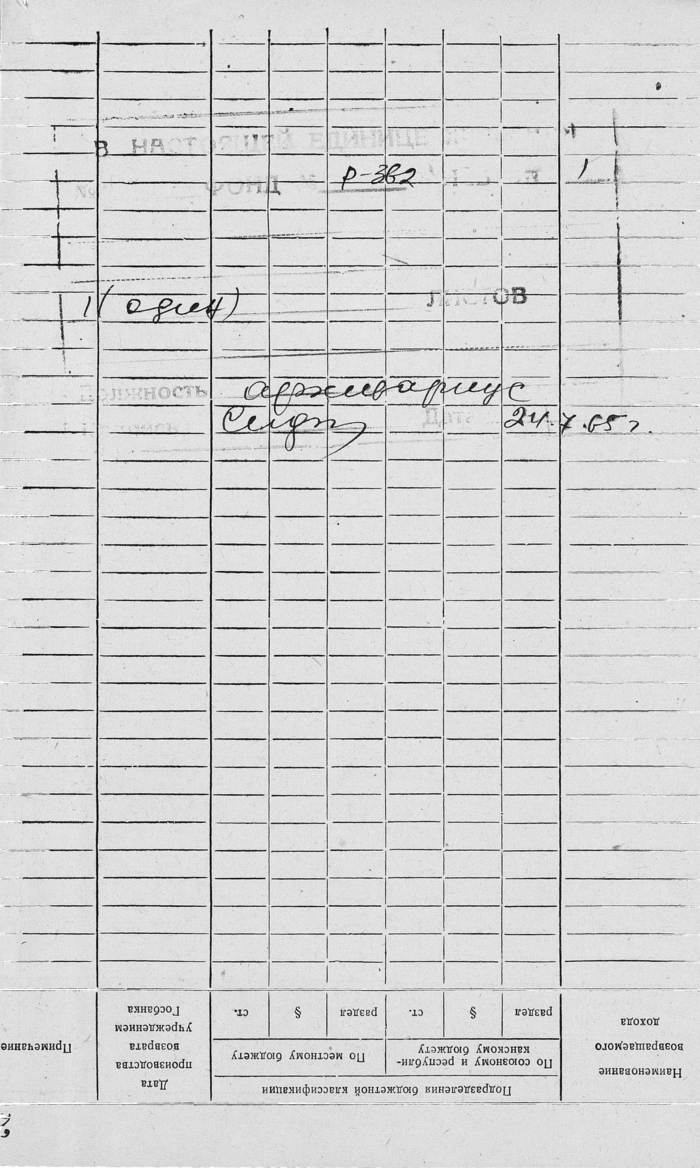 В НАСТОЯЩЕЙ ЕДИНИЦЕ
№ ФОНД № Р-382 1
1 (один) ЛИСТОВ
Должность архивариус
Дата 24.7.65 г.
Наименование возвращаемого дохода
Подразделения бюджетной классификации
По союзному и республи-
канскому бюджету
По местному бюджету
раздел § ст. раздел § ст.
Дата
производства
возврата
учреждением
Госбанка
Примечание